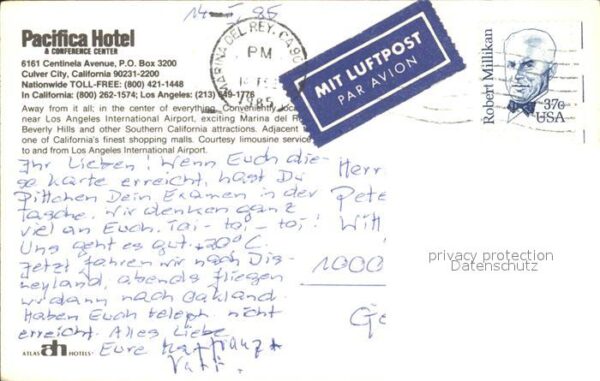 14-5 85
Pacifica Hotel
& CONFERENCE CENTER
6161 Centinela Avenue, P.O. Box 3200
Culver City, California 90231-2200
Nationwide TOLL-FREE: (800) 421-1448
In California: (800) 262-1574; Los Angeles: (213) 649-1776
Away from it all; in the center of everything. Conveniently
near Los Angeles International Airport, exciting Marina del
Beverly Hills and other Southern California attractions. Adjacent
one of California's finest shopping malls. Courtesy limousine service
to and from Los Angeles International Airport.
MARINA DEL REY, CA
PM
1985
MIT LUFTPOST
PAR AVION
Robert Millikan
37c
USA
Ihr Lieben! Wenn Euch die-
se Karte erreicht, hast Du
Pittchen Dein Examen in der
Tasche. Wir denken ganz
viel an Euch. Toi-toi-toi!
Uns geht es gut. +20°C.
Jetzt fahren wir nach Dis-
neyland, abends fliegen
wir dann nach Oakland.
Haben Euch teleph. nicht
erreicht. Alles Liebe
Eure
Herr
Pete
Witt
1000
Ge
privacy protection
Datenschutz
ATLAS ah HOTELS